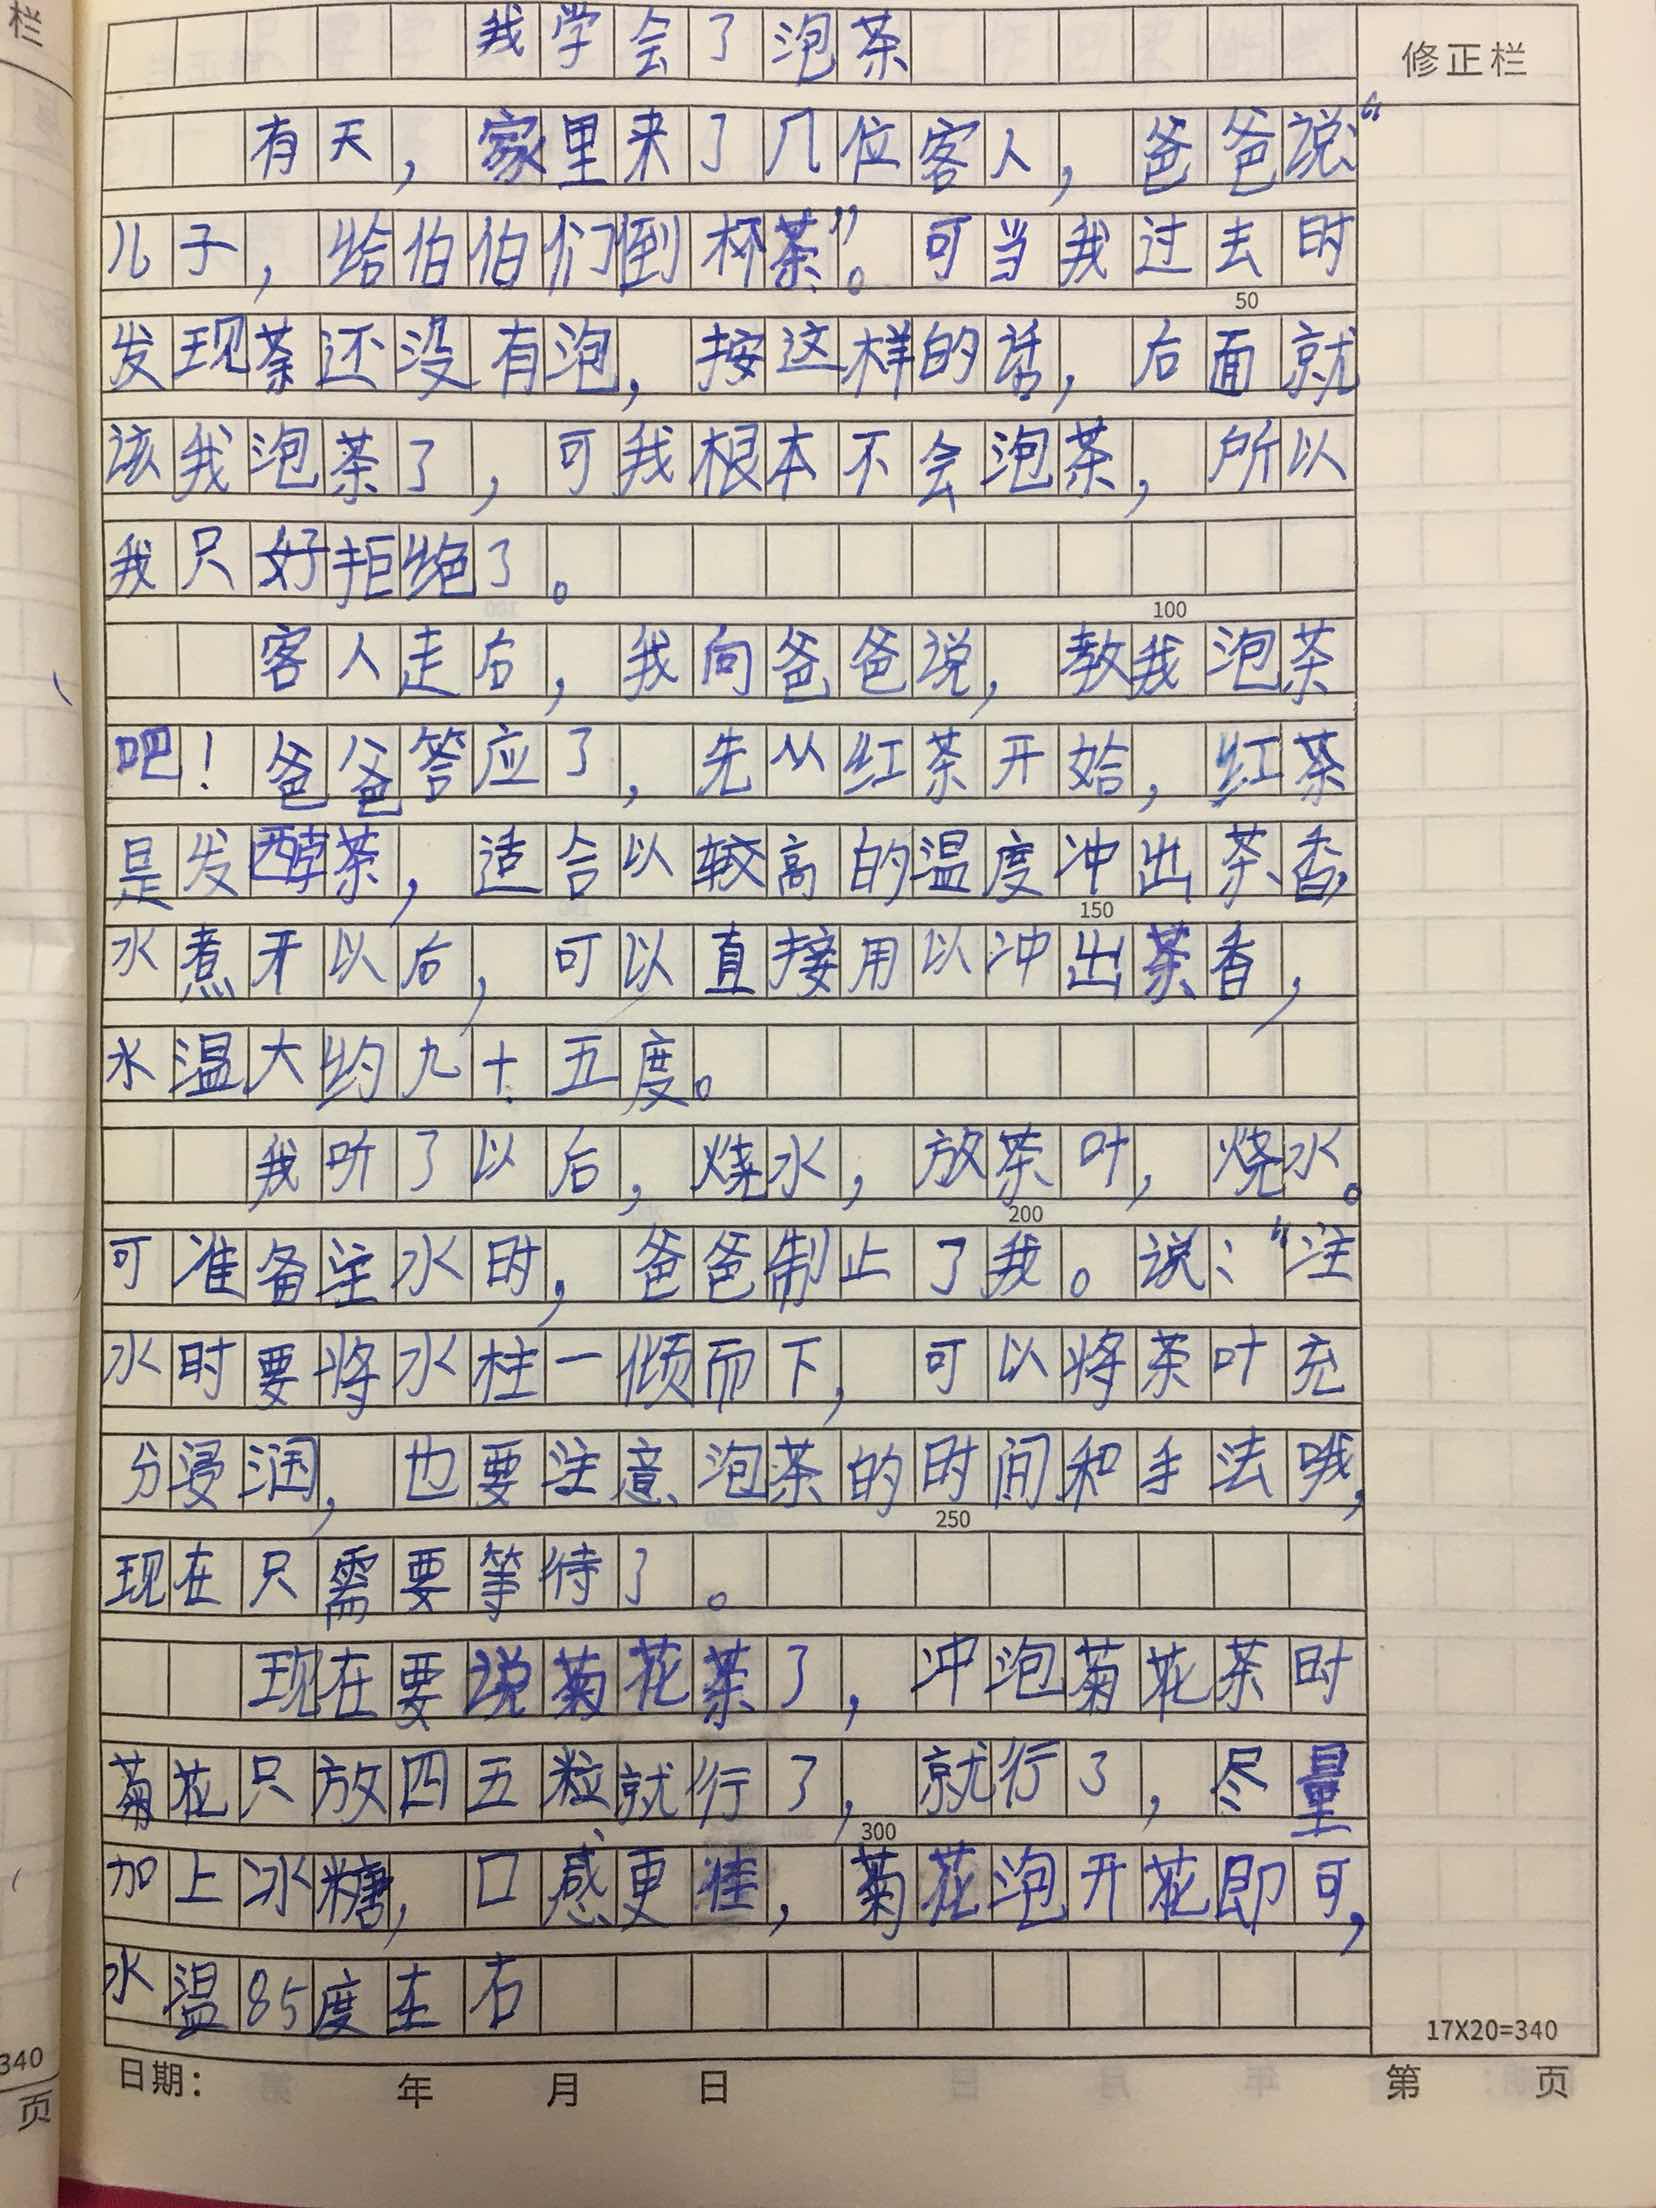 栏
修正栏
我学会了泡茶
有天，家里来了几位客人，爸爸说：“
儿子，给伯伯们倒杯茶”。可当我过去时
50
发现茶还没有泡，按这样的话，后面就
该我泡茶了，可我根本不会泡茶，所以
我只好拒绝了。
100
客人走后，我向爸爸说，教我泡茶
吧！爸爸答应了，先从红茶开始，红茶
是发醇茶，适合以较高的温度冲出茶香，
150
水煮开以后，可以直接用以冲出茶香，
水温大约九十五度。
我听了以后，烧水，放茶叶，烧水。
200
可准备注水时，爸爸制止了我。说：“注
水时要将水柱一倾而下，可以将茶叶充
分浸润，也要注意泡茶的时间和手法哦，
250
现在只需要等待了。
现在要说菊花茶了，冲泡菊花茶时
菊花只放四五粒就行了，就行了，尽量
300
加上冰糖，口感更佳，菊花泡开花即可，
水温85度左右
17X20=340
日期： 年 月 日 第 页
340
页